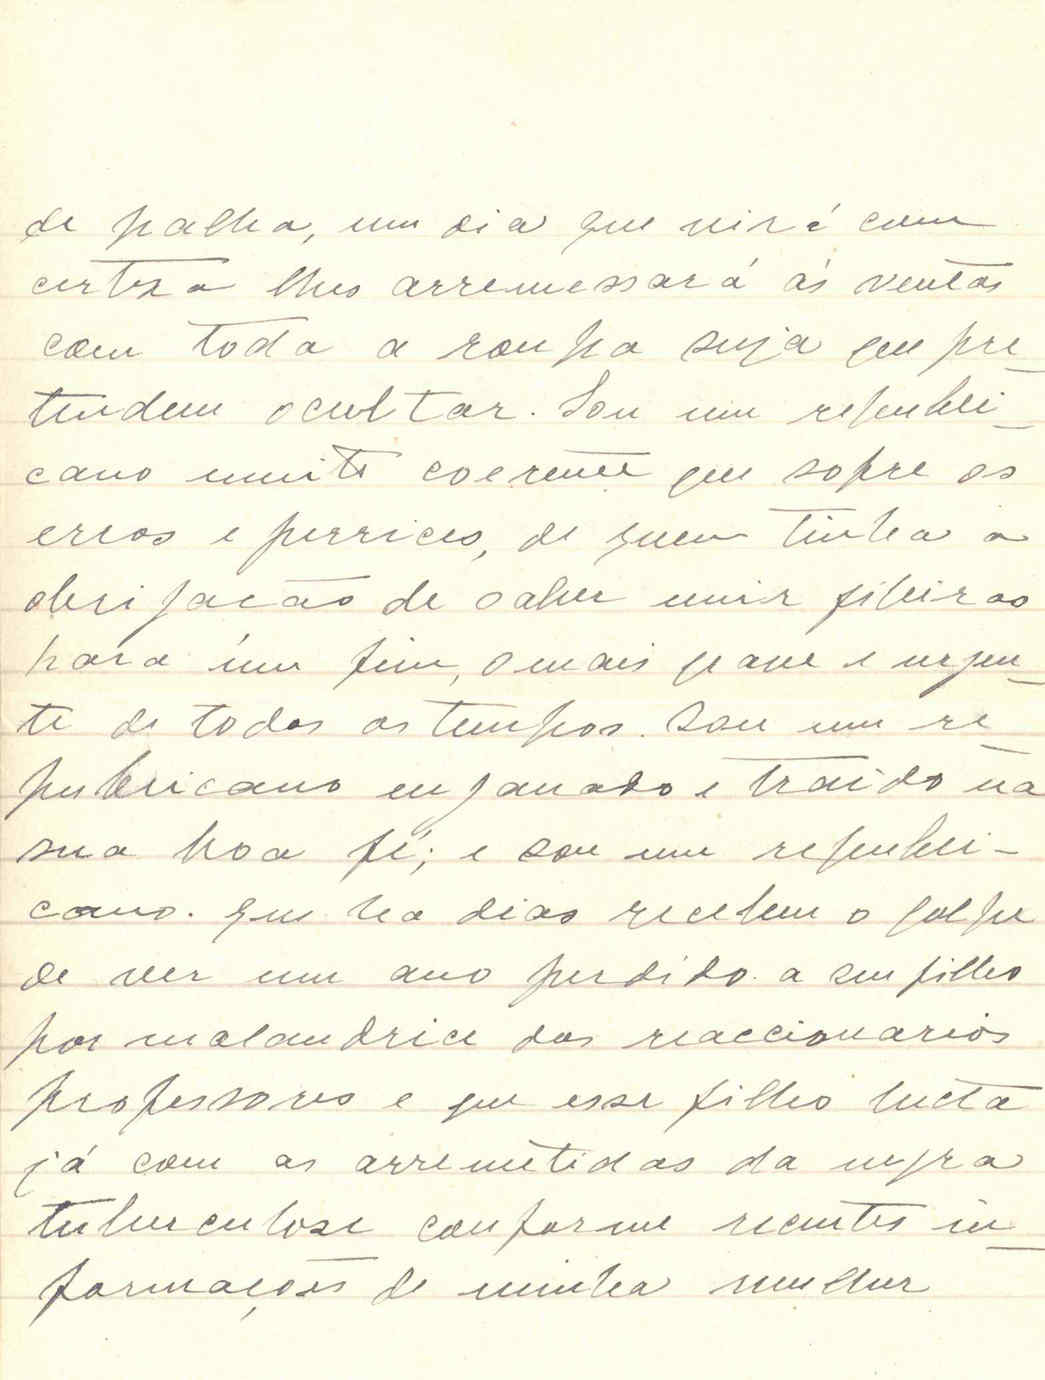 de palha, um dia que virá com
certeza lhes arremessará ás ventas
com toda a roupa suja que pre-
tendem ocultar. Sou um republi-
cano muito coerente que sofre os
erros e perrices, de quem tinha a
obrigação de saber unir fileiras
para úm fim, o mais grave e urgen-
te de todos os tempos. Sou um re-
publicano enganado e traído na
sua boa fé; e sou um republi-
cano. que ha dias recebeu o golpe
de ver um ano perdido a seu filho
por malandrice dos reaccionarios
professores e que esse filho lucta
já com as arremetidas da negra
tuberculose conforme recentes in-
formações de minha mulher